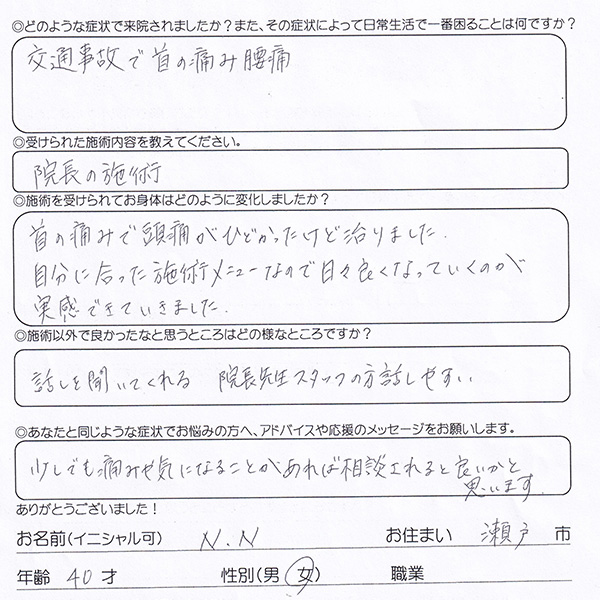 ◎どのような症状で来院されましたか？また、その症状によって日常生活で一番困ることは何ですか？
交通事故で首の痛み腰痛
◎受けられた施術内容を教えてください。
院長の施術
◎施術を受けられてお身体はどのように変化しましたか？
首の痛みで頭痛がひどかったけど治りました.
自分に合った施術メニューなので日々良くなっていくのが
実感できていきました.
◎施術以外で良かったなと思うところはどの様なところですか？
話しを聞いてくれる 院長先生スタッフの方話しやすい
◎あなたと同じような症状でお悩みの方へ、アドバイスや応援のメッセージをお願いします。
少しでも痛みや気になることがあれば相談されると良いかと
思います.
ありがとうございました！
お名前(イニシャル可) N.N お住まい 瀬戸 市
年齢 40 才 性別(男 女) 職業